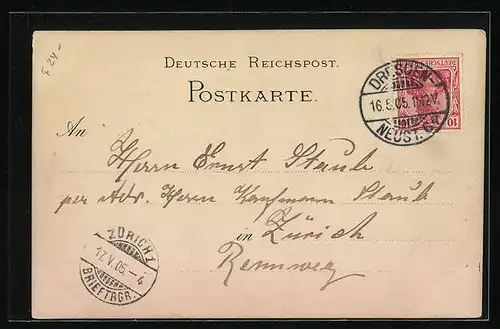 F 24.-
DEUTSCHE REICHSPOST.
POSTKARTE.
DRESDEN-
16.5.05. 11-12V.
NEUST. 6
10
An
Herrn Ernst Staub
per Adr. Herrn Kaufmann Staub
in Zürich
Rennweg
ZÜRICH 1
17.V.05.-4
BRIEFTRGR.